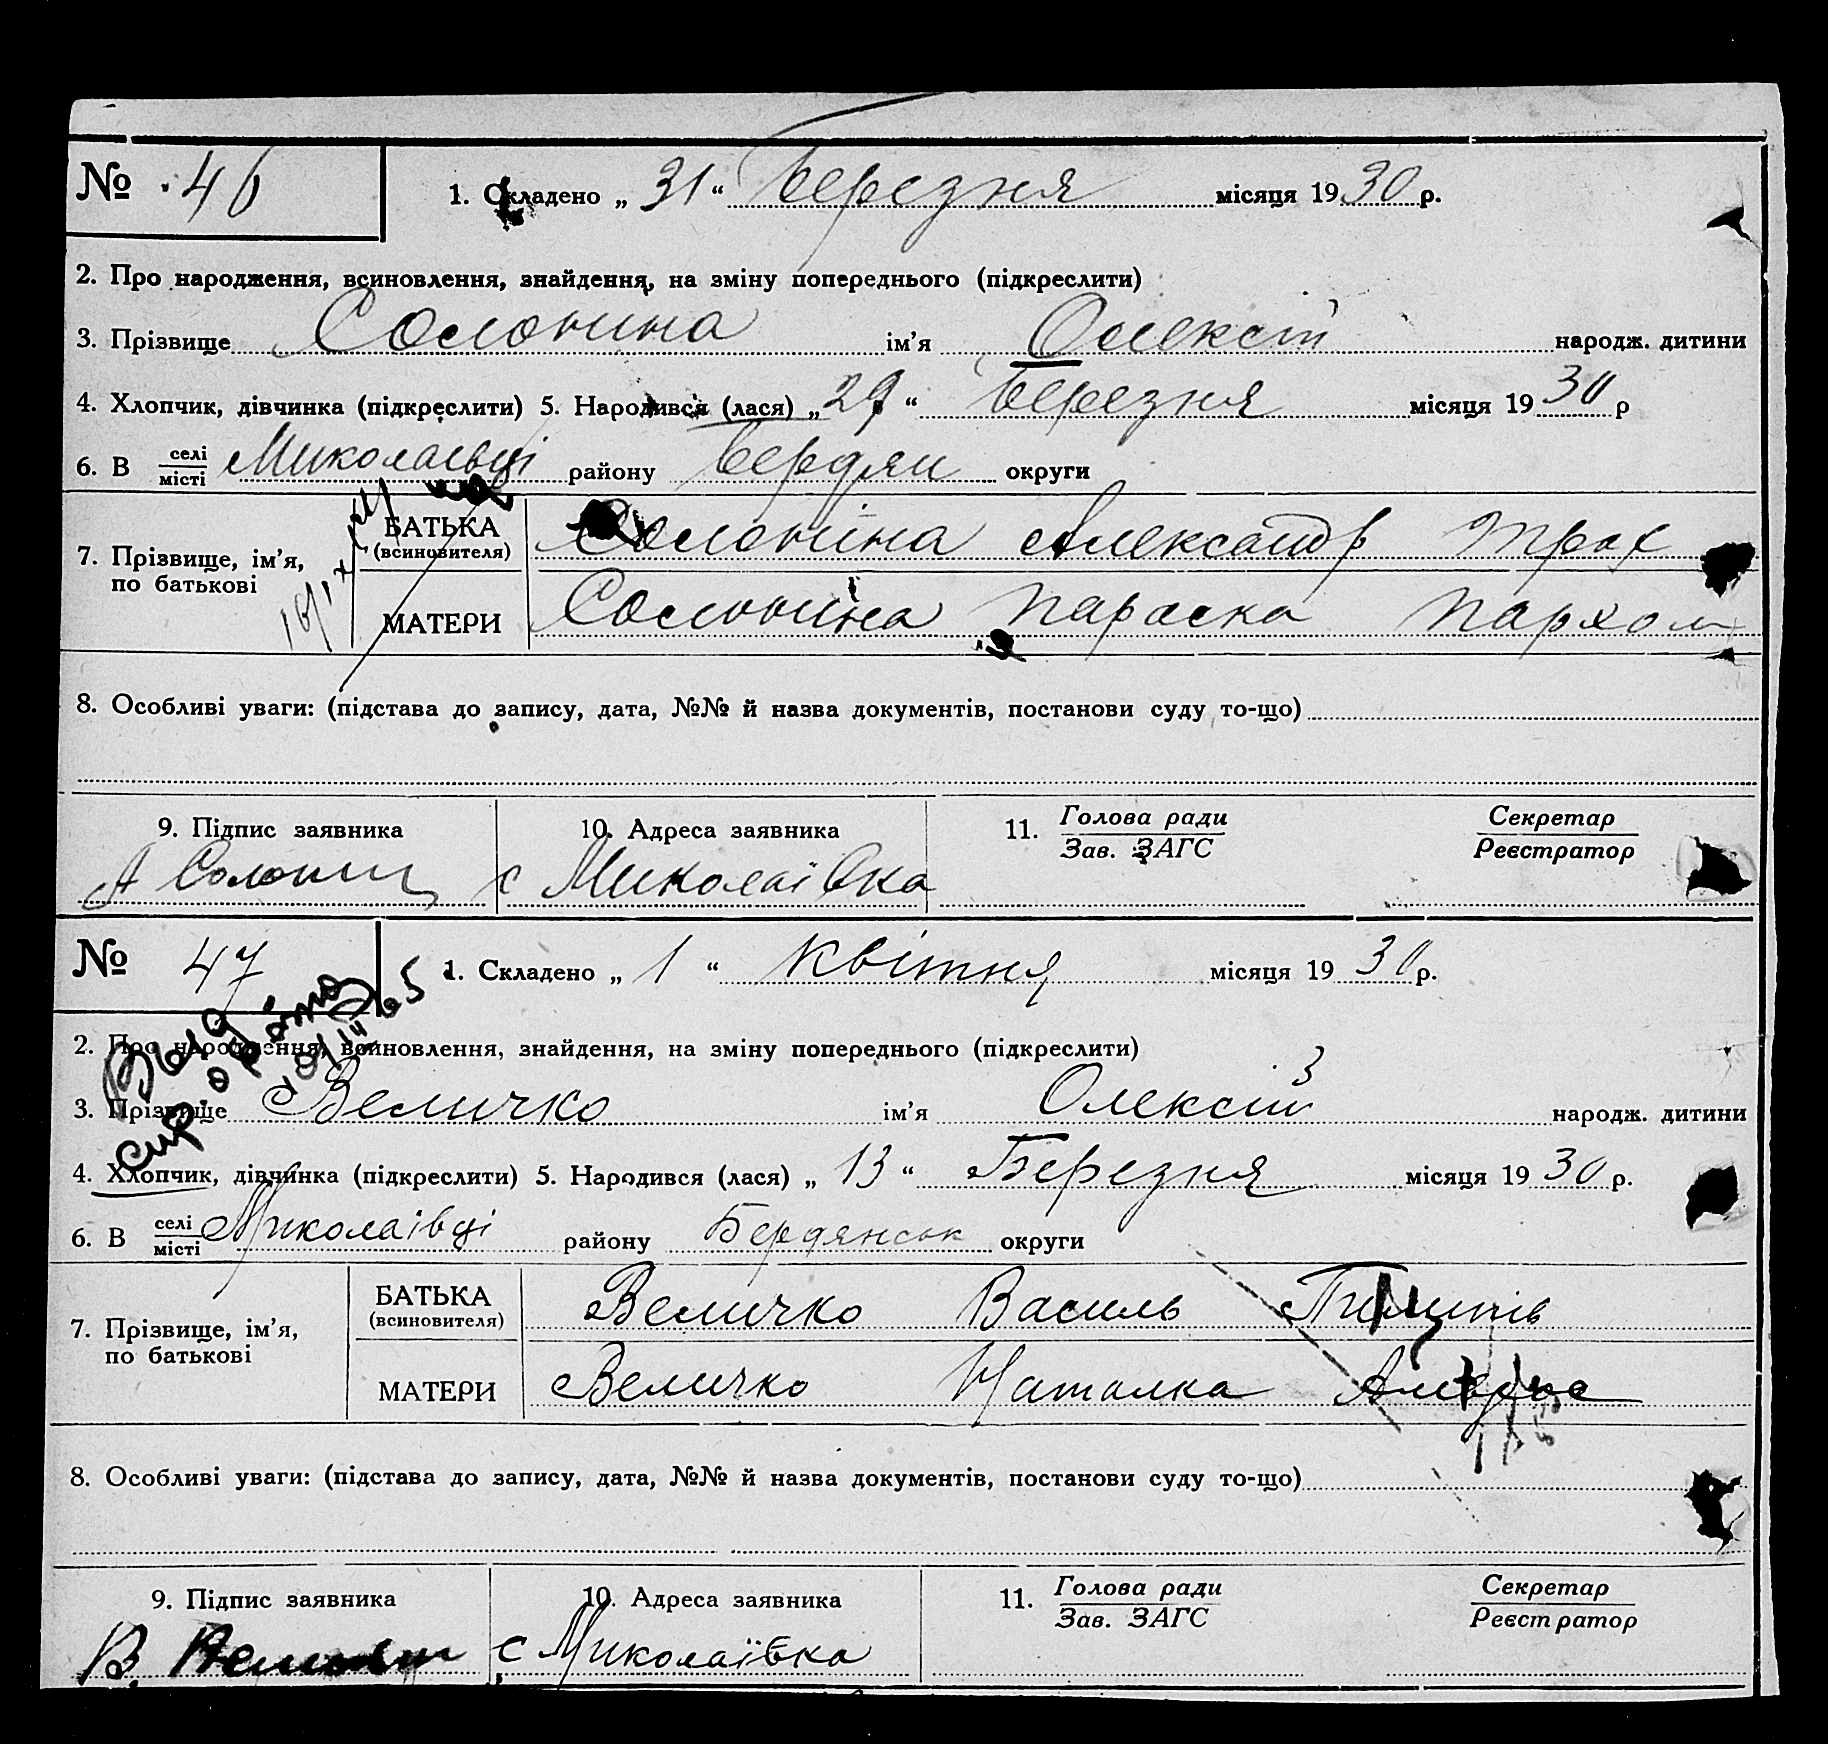 № 46
1. Складено „ 31 “ березня місяця 1930 р.
2. Про народження, всиновлення, знайдення, на зміну попереднього (підкреслити)
3. Прізвище Солонина ім’я Олексій народж. дитини
4. Хлопчик, дівчинка (підкреслити) 5. Народився (лася) „ 29 “ березня місяця 1930 р
6. В селі місті Миколаівці району Бердян округи
7. Прізвище, ім’я, по батькові
БАТЬКА (всиновителя) Солонина Александр Троф
МАТЕРИ Солонина Параска Пархом
8. Особливі уваги: (підстава до запису, дата, №№ й назва документів, постанови суду то-що)
9. Підпис заявника
10. Адреса заявника
11. Голова ради Зав. ЗАГС
Секретар Реєстратор
А Солонин с Миколаівка
№ 47
1. Складено „ 1 “ квітня місяця 1930 р.
2. Про народження, всиновлення, знайдення, на зміну попереднього (підкреслити)
3. Прізвище Величко ім’я Олексій народж. дитини
4. Хлопчик, дівчинка (підкреслити) 5. Народився (лася) „ 13 “ Березня місяця 1930 р.
6. В селі місті Миколаівці району Бердянськ округи
7. Прізвище, ім’я, по батькові
БАТЬКА (всиновителя) Величко Василь Пилипів
МАТЕРИ Величко Наталка
8. Особливі уваги: (підстава до запису, дата, №№ й назва документів, постанови суду то-що)
9. Підпис заявника
10. Адреса заявника
11. Голова ради Зав. ЗАГС
Секретар Реєстратор
В. с Миколаївка